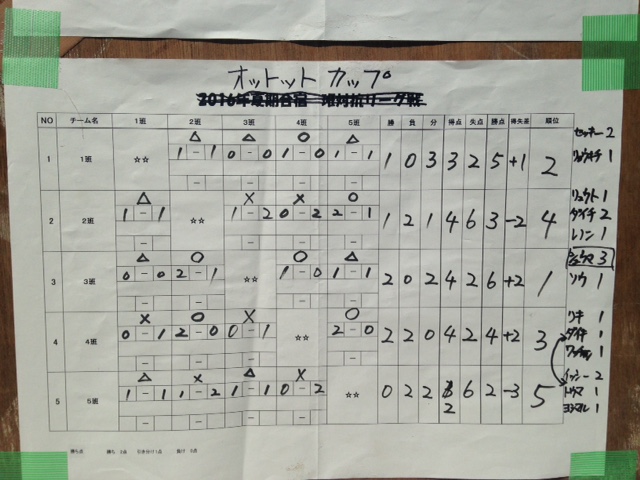 オットット カップ
2016年夏期合宿 班対抗リーグ戦
NO チーム名 1班 2班 3班 4班 5班 勝 負 分 得点 失点 勝点 得失差 順位
△ △ ○ △
1 1班 ☆☆ 1 - 1 0 - 0 1 - 0 1 - 1 1 0 3 3 2 5 +1 2
セッキー 2
リョウキチ 1
△ × × ○
2 2班 1 - 1 ☆☆ 1 - 2 0 - 2 2 - 1 1 2 1 4 6 3 -2 4
リュウト 1
タイチ 2
レノン 1
△ ○ ○ △
3 3班 0 - 0 2 - 1 ☆☆ 1 - 0 1 - 1 2 0 2 4 2 6 +2 1
3
ソウ 1
× ○ × ○
4 4班 0 - 1 2 - 0 0 - 1 ☆☆ 2 - 0 2 2 0 4 2 4 +2 3
リキ 1
1
1
△ × △ ×
5 5班 1 - 1 1 - 2 1 - 1 0 - 2 ☆☆ 0 2 2 6 2 -3 5
2
イッシー 2
トウマ 1
1
勝ち点 勝ち 3点 引き分け 1点 負け 0点